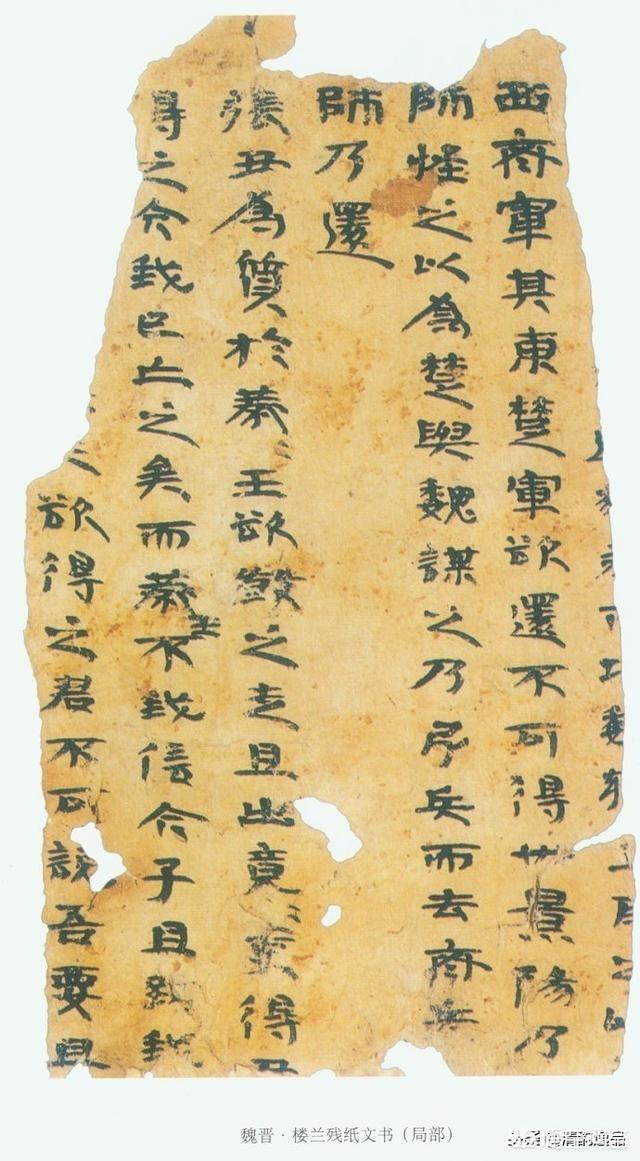 西齊軍其東楚軍欲還不可得也景陽乃
師怪之以為楚與魏謀之乃引兵而去齊兵
師乃還
張丑為質於燕〻王欲殺之走且出竟〻吏得丑
得之今我已亡之矣而燕王不我信今子且致我
欲得之君不可說吾要且
魏晋·楼兰残纸文书（局部）